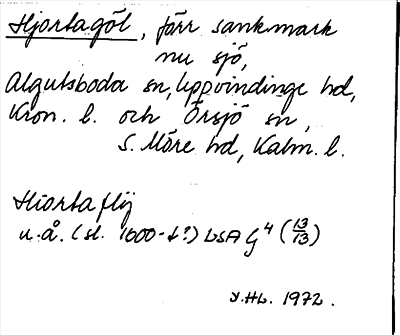 Hjortagöl, förr sankmark
nu sjö,
Algutsboda sn, Uppvindinge hd,
Kron. l. och Örsjö sn,
S. Möre hd, Kalm. l.
Hiortaflÿ
u.å. (sl. 1600-t?) LSA G 4 (13/13)
1972.